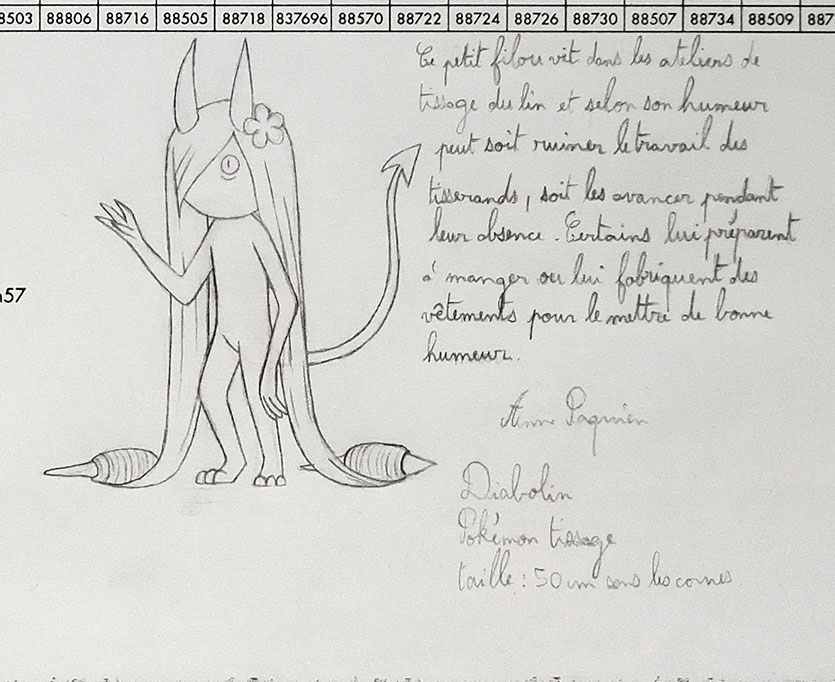 8503 88806 88716 88505 88718 837696 88570 88722 88724 88726 88730 88507 88734 88509 887
Ce petit filou vit dans les ateliers de
tissage du lin et selon son humeur
peut soit ruiner le travail des
tisserands, soit les avancer pendant
leur absence. Certains lui préparent
à manger ou lui fabriquent des
vêtements pour le mettre de bonne
humeur.
57
Anne
Diabolin
Pokémon tissage
taille : 50 cm sans les cornes